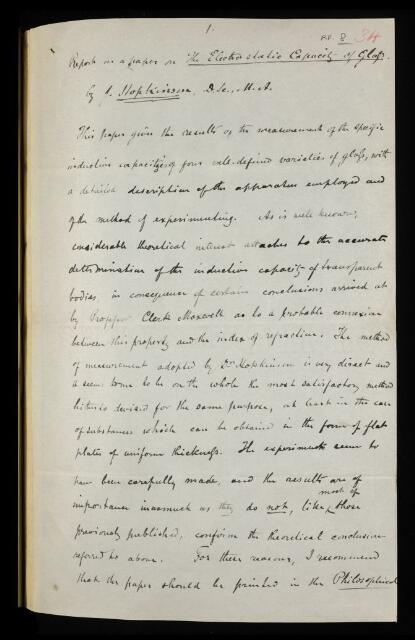 1.
RR. 8 314
Report on a paper on The Electrostatic Capacity of Glass.
by J. Hopkinson, D.Sc., M.A.
This paper gives the results of the measurement of the specific
inductive capacities of four well-defined varieties of glass, with
a detailed description of the apparatus employed and
of the method of experimenting. As is well known,
considerable theoretical interest attaches to the accurate
determination of the inductive capacity of transparent
bodies, in consequence of certain conclusions arrived at
by Professor Clerk Maxwell as to a probable connexion
between this property and the index of refraction. The method
of measurement adopted by Dr Hopkinson is very direct and
it seems to me to be on the whole the most satisfactory method
hitherto devised for the same purpose, at least in the case
of substances which can be obtained in the form of flat
plates of uniform thickness. The experiments seem to
have been carefully made, and the results are of
importance inasmuch as they do not, like most of those
previously published, confirm the theoretical conclusion
referred to above. For these reasons, I recommend
that the paper should be printed in the Philosophical